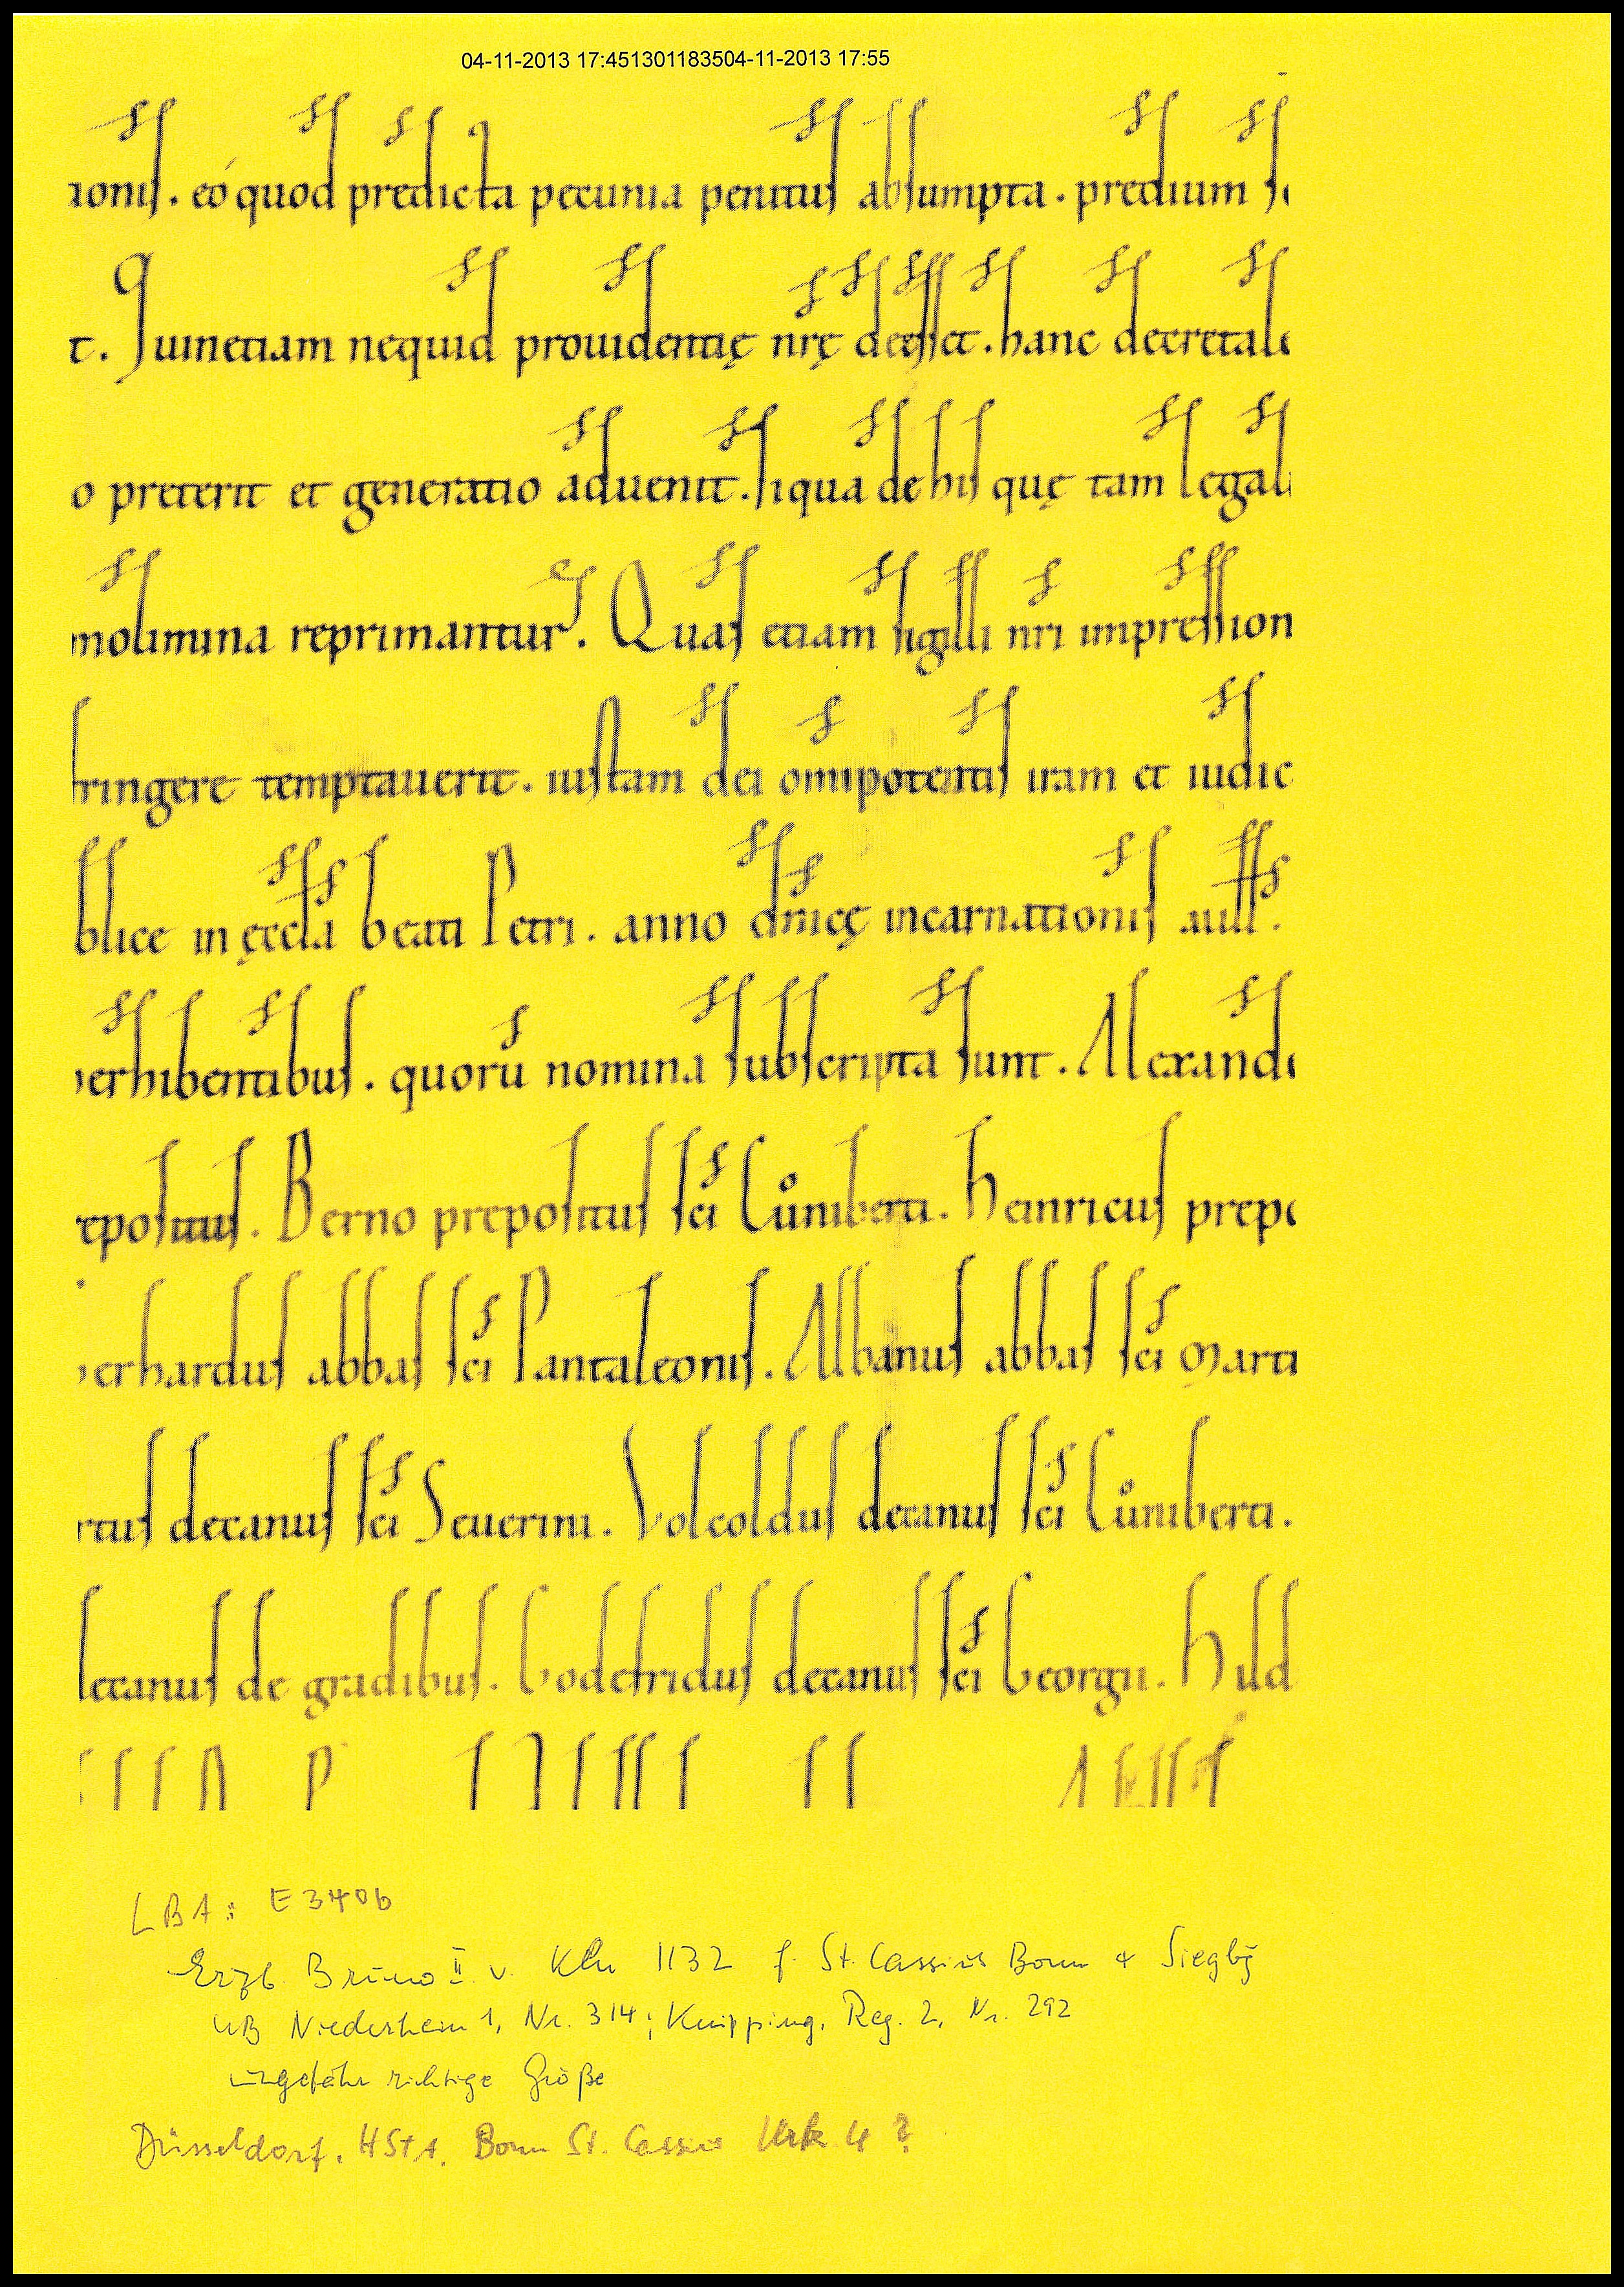 04-11-2013 17:451301183504-11-2013 17:55
ionis. eó quod predicta pecunia penitus absumpta. predium se
t. Quin etiam nequid prouidentię nrę deesset. hanc decretale
o preterit et generatio aduenit. siqua de his quę tam legali
molimina reprimantur. Quas etiam sigilli nri impression
fringere temptauerit. iustam dei omipotentis iram et iudic
blice in ęccla beati Petri. anno dnicę incarnationis
erhibentibus. quorū nomina subscripta sunt. Alexande
epositus. Berno prepositus sci Cůniberti. Heinricus prepo
erhardus abbas sci Pantaleonis. Albanus abbas sci Marti
rtus decanus sci Seuerini. Volcoldus decanus sci Cůniberti.
decanus de gradibus. Godefridus decanus sci Georgii. Hild
LBA: E 3406
Erzb. Bruno II. v. Kln 1132 f. St. Cassius Bonn + Siegbg
UB Niederrhein 1, Nr. 314; Knipping, Reg. 2, Nr. 292
ungefähr richtige Größe
Düsseldorf, HStA, Bonn St. Cassius Urk 4 ?